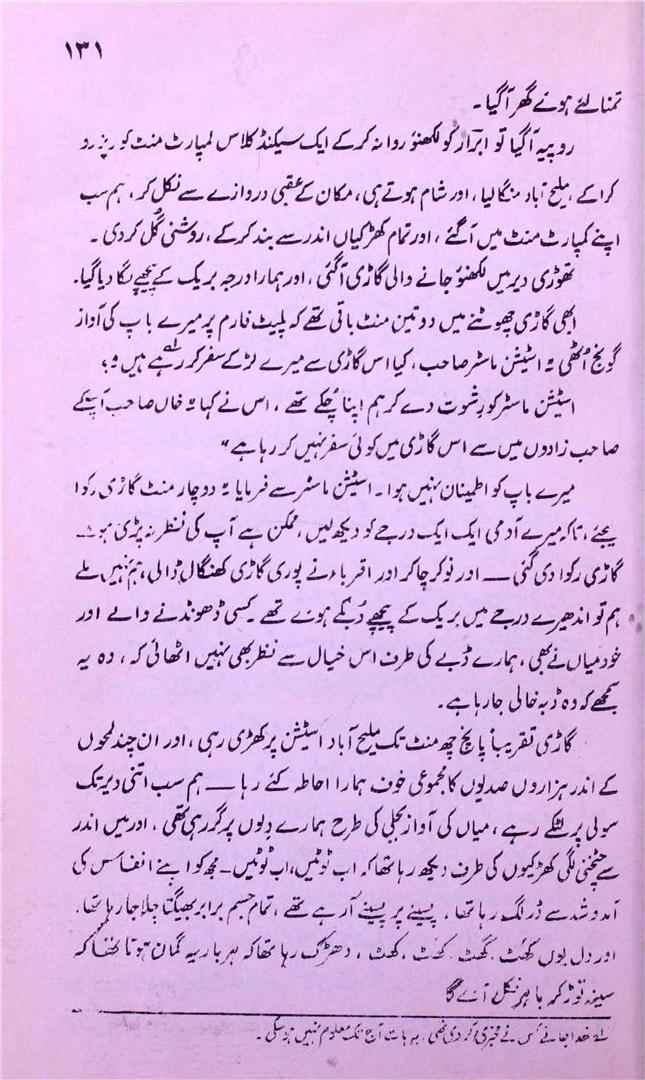 ۱۳۱
تمنا لئے ہوئے گھر آ گیا۔
روپیہ آگیا تو ابرار کو لکھنؤ روانہ کر کے ایک سیکنڈ کلاس کمپارٹ منٹ کو ریزرو
کرا کے، ملیح آباد منگالیا، اور شام ہوتے ہی، مکان کے عقبی دروازے سے نکل کر، ہم سب
اپنے کمپارٹ منٹ میں آگئے، اور تمام کھڑکیاں اندر سے بند کر کے، روشنی گُل کر دی۔
تھوڑی دیر میں لکھنؤ جانے والی گاڑی آگئی، اور ہمارا درجہ بریک کے پیچھے لگا دیا گیا۔
ابھی گاڑی چھوٹنے میں دو تین منٹ باقی تھے کہ پلیٹ فارم پر میرے باپ کی آواز
گونج اُٹھی "اسٹیشن ماسٹر صاحب، کیا اس گاڑی سے میرے لڑکے سفر کر رہے ہیں؟"
اسٹیشن ماسٹر کو رشوت دے کر ہم اپنا چُکے تھے، اس نے کہا "خاں صاحب آپ کے
صاحب زادوں میں سے اس گاڑی میں کوئی سفر نہیں کر رہا ہے"
میرے باپ کو اطمینان نہیں ہوا۔ اسٹیشن ماسٹر سے فرمایا "دو چار منٹ گاڑی رکوا
دیجئے، تاکہ میرے آدمی ایک ایک درجے کو دیکھ لیں، ممکن ہے آپ کی نظر نہ پڑی ہو"۔
گاڑی رکوا دی گئی — اور نوکر چاکر اور اقرباء نے پوری گاڑی کھنگال ڈالی، ہم نہیں ملے
ہم تو اندھیرے درجے میں بریک کے پیچھے دُبکے ہوئے تھے۔ کسی ڈھونڈنے والے اور
خود میاں نے بھی، ہمارے ڈبے کی طرف اس خیال سے نظر بھی نہیں اٹھائی کہ، وہ یہ
سمجھے کہ وہ ڈبہ خالی جا رہا ہے۔
گاڑی تقریباً پانچ چھ منٹ تک ملیح آباد اسٹیشن پر کھڑی رہی، اور ان چند لمحوں
کے اندر ہزاروں صدیوں کا مجموعی خوف ہمارا احاطہ کئے رہا — ہم سب اتنی دیر تک
سولی پر لٹکے رہے، میاں کی آواز بجلی کی طرح ہمارے دلوں پر گر رہی تھی، اور میں اندر
سے چٹخنی لگی کھڑکیوں کی طرف دیکھ رہا تھا کہ اب ٹوٹیں، اب ٹوٹیں۔ مجھ کو اپنے انفاس کی
آمد و شد سے ڈر لگ رہا تھا، پسینے پر پسینے آ رہے تھے، تمام جسم برابر بھیگتا چلا جا رہا تھا۔
اور دل یوں کھٹ، کھٹ، کھٹ، کھٹ، دھڑک رہا تھا کہ ہر بار یہ گمان ہوتا تھا کہ
سینہ توڑ کر باہر نکل آئے گا
لہ خدا جانے کس نے مخبری کر دی تھی، یہ بات آج تک معلوم نہیں ہو سکی۔